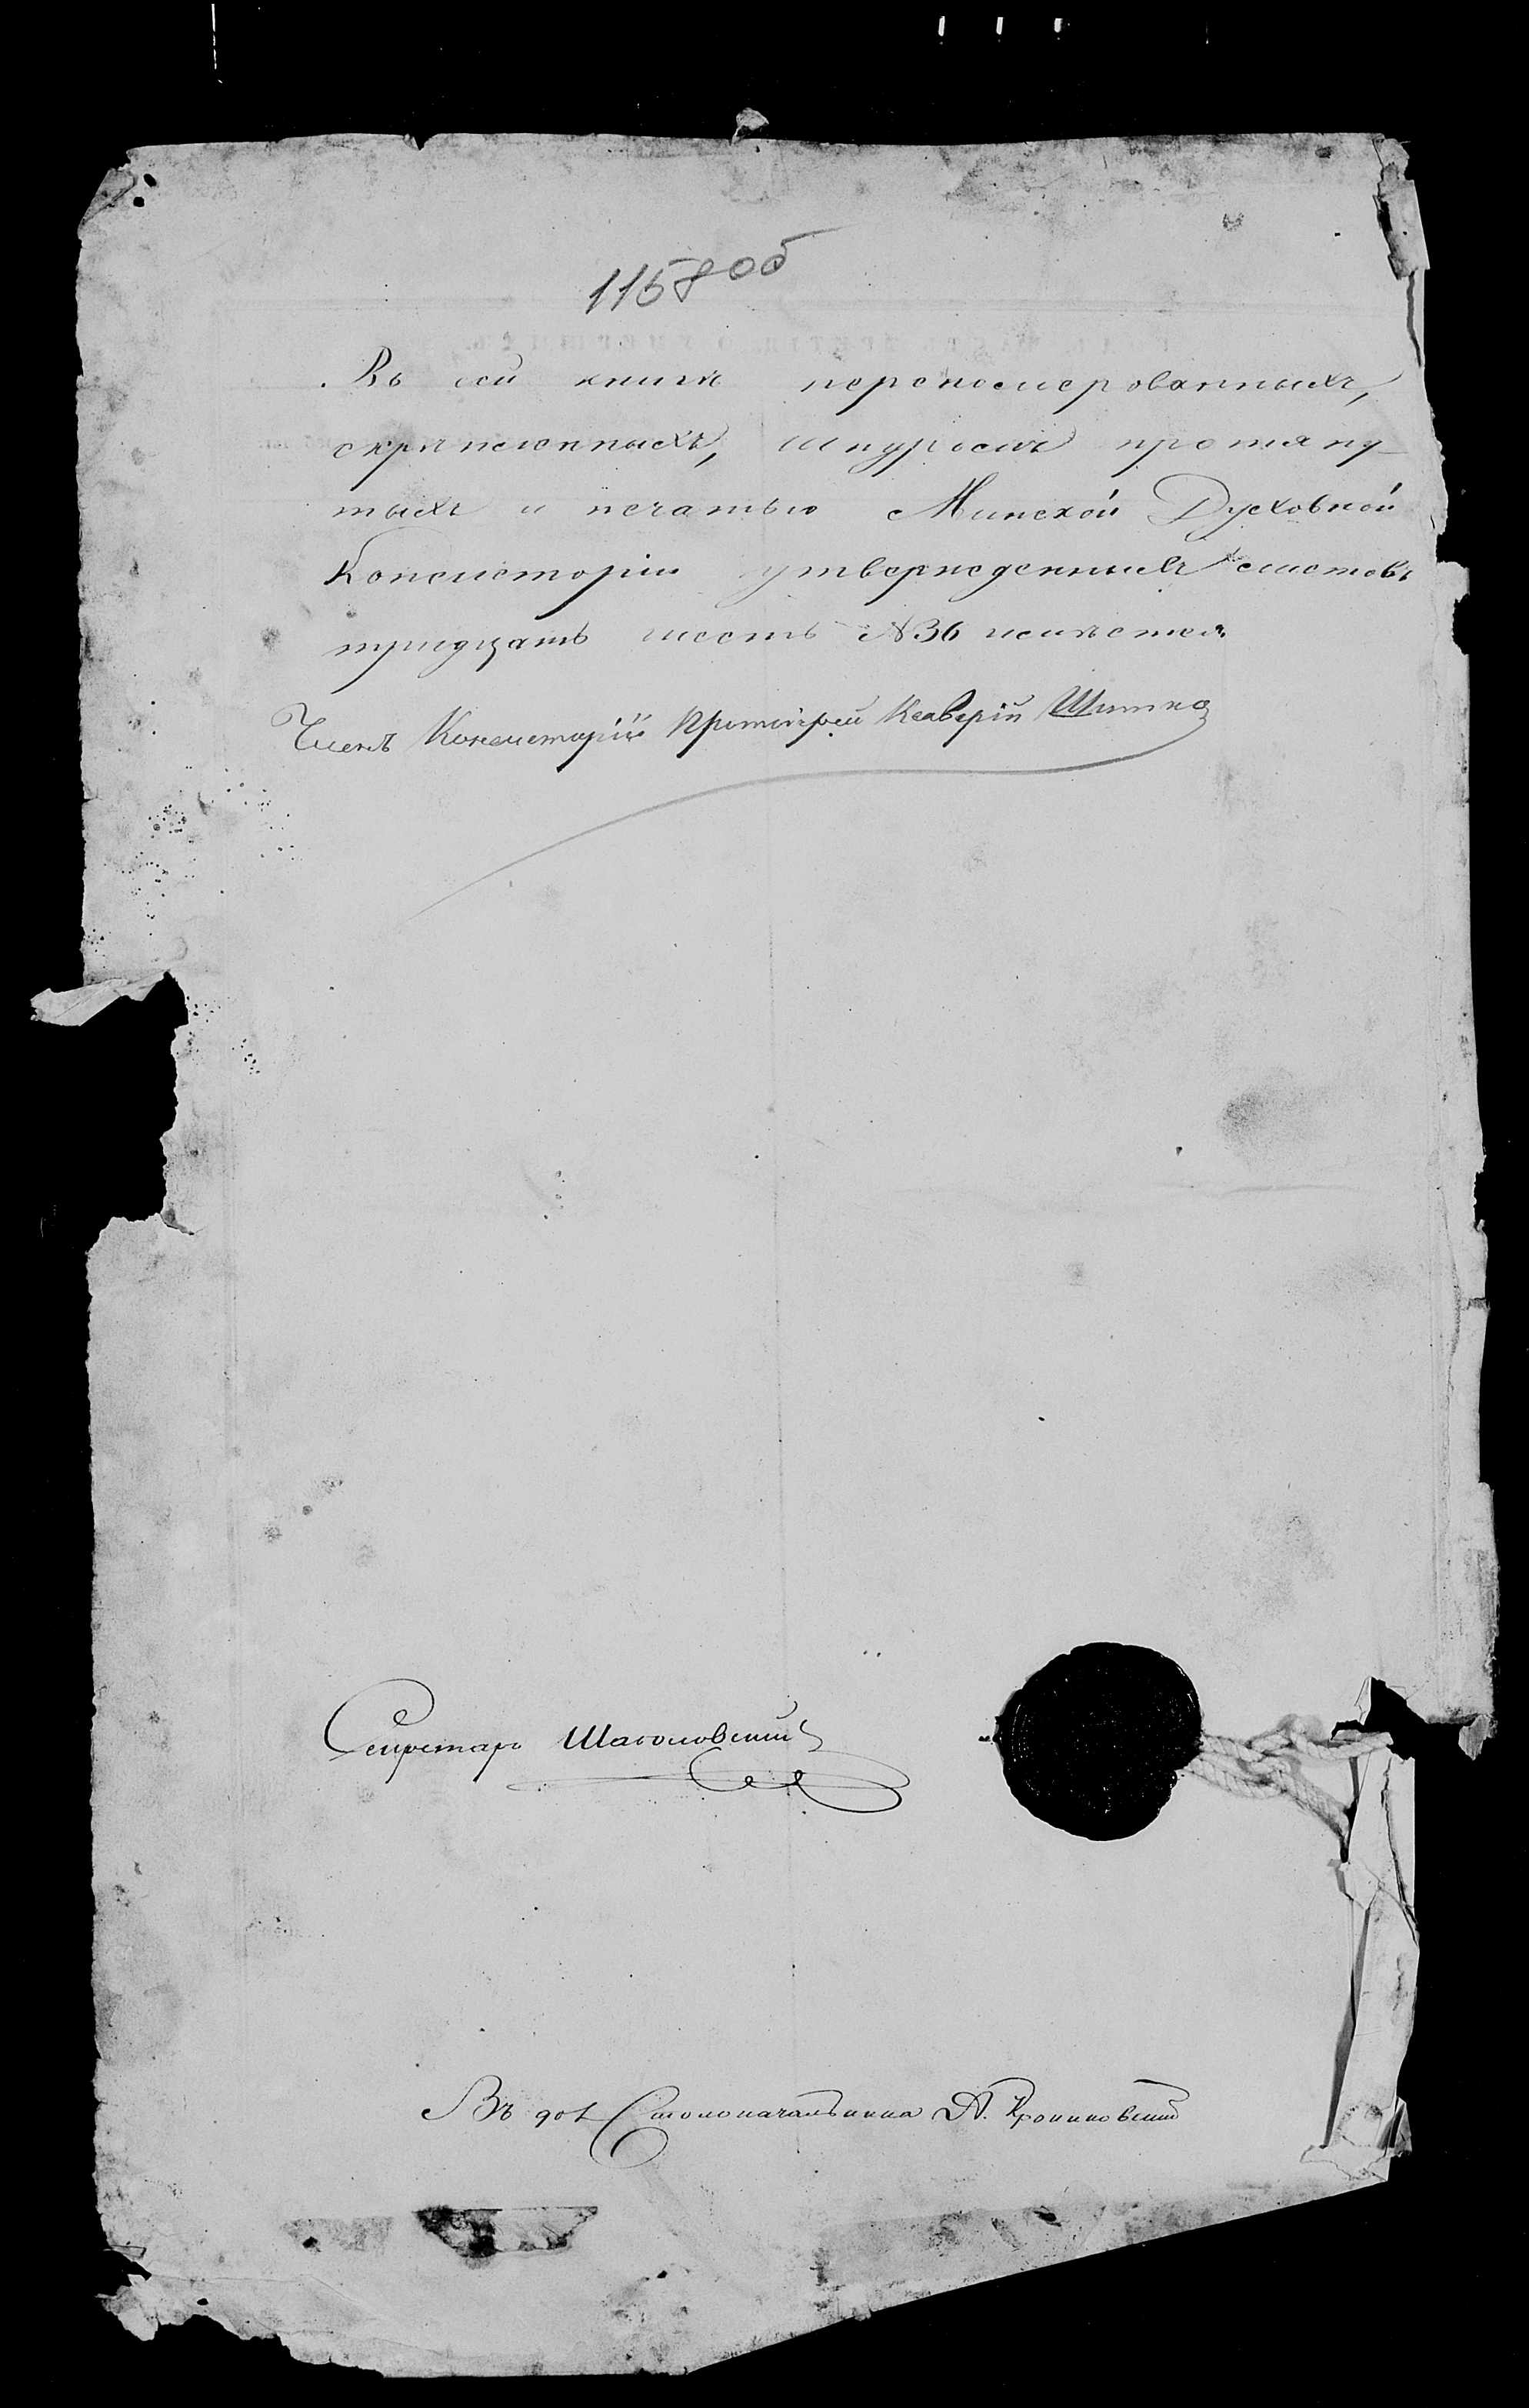 1158об
Въ сей книгѣ перономерованныхъ,
скрѣпленныхъ, шнуромъ протяну-
тыхъ и печатью Минской Духовной
Консисторіи утвержденныхъ листовъ
тридцать шесть №36 имѣется.
Членъ Консисторіи Протоіерей Ксаверій Шитко
Секретарь
Въ дол Столоначальника А.